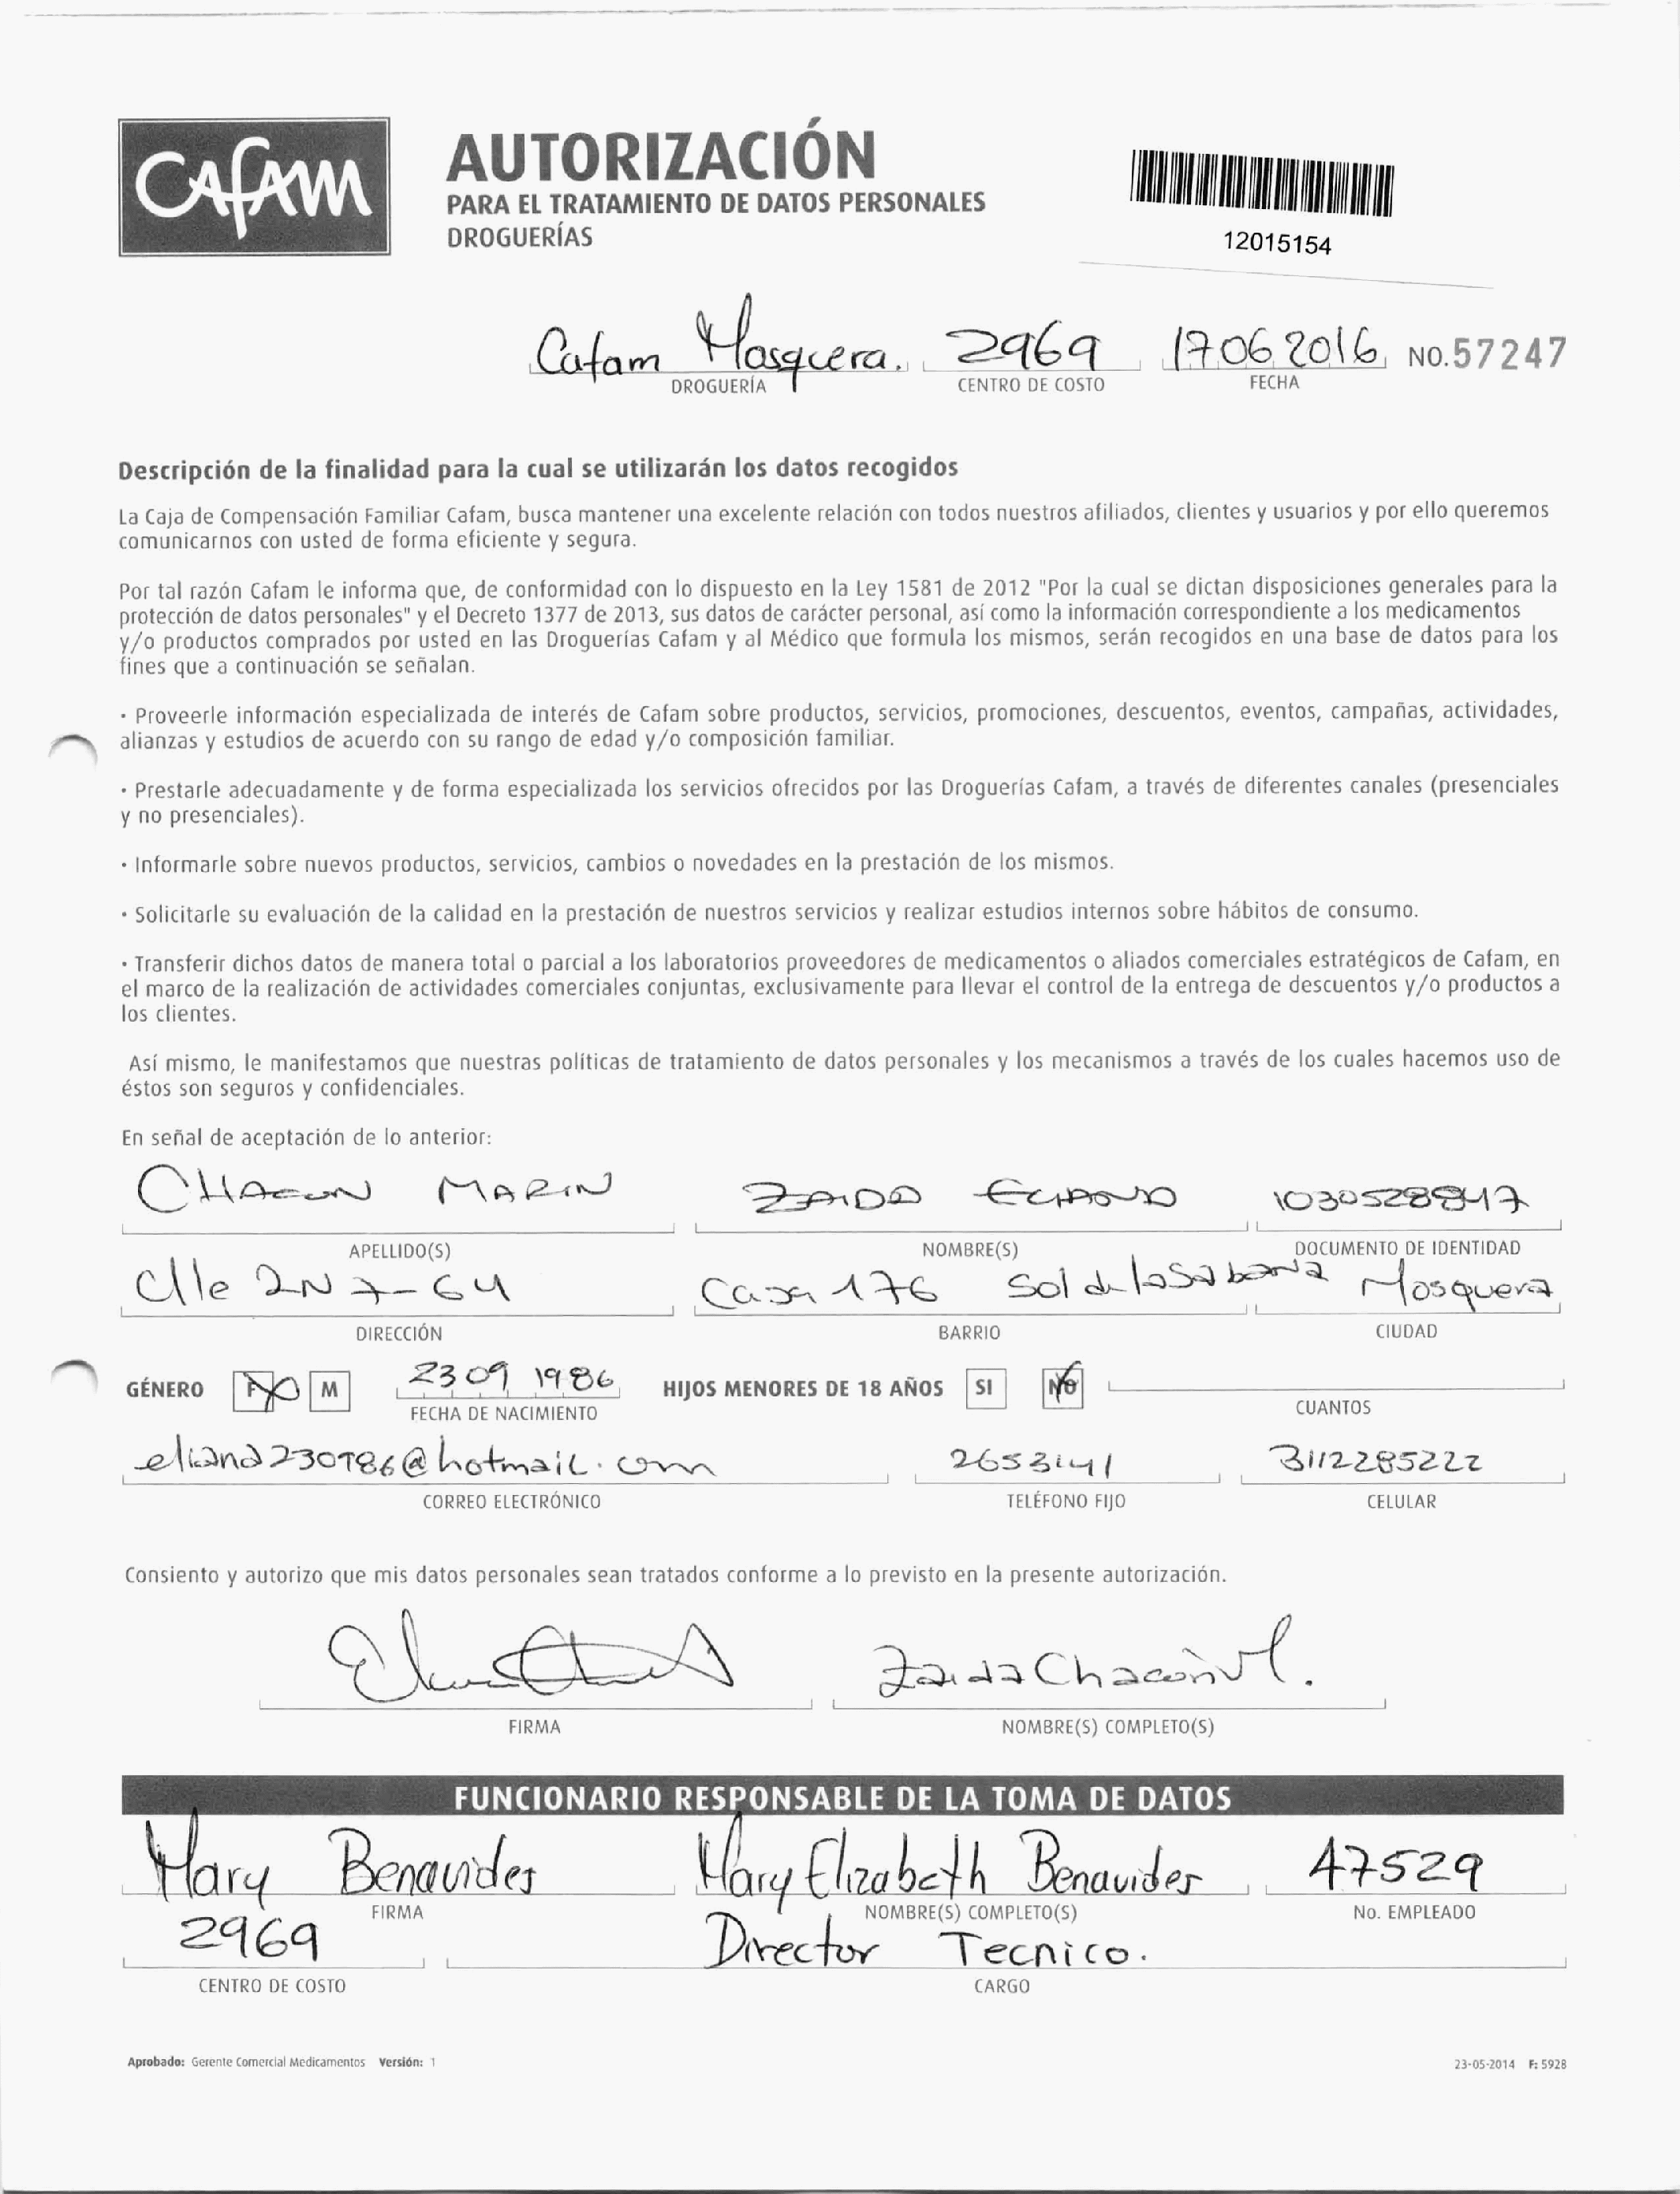 CAFAM
AUTORIZACIÓN
PARA EL TRATAMIENTO DE DATOS PERSONALES
DROGUERÍAS
12015154
Cafam Mosquera. 2969 17062016 NO.57247
DROGUERÍA CENTRO DE COSTO FECHA
Descripción de la finalidad para la cual se utilizarán los datos recogidos
La Caja de Compensación Familiar Cafam, busca mantener una excelente relación con todos nuestros afiliados, clientes y usuarios y por ello queremos
comunicarnos con usted de forma eficiente y segura.
Por tal razón Cafam le informa que, de conformidad con lo dispuesto en la Ley 1581 de 2012 "Por la cual se dictan disposiciones generales para la
protección de datos personales" y el Decreto 1377 de 2013, sus datos de carácter personal, así como la información correspondiente a los medicamentos
y/o productos comprados por usted en las Droguerías Cafam y al Médico que formula los mismos, serán recogidos en una base de datos para los
fines que a continuación se señalan.
· Proveerle información especializada de interés de Cafam sobre productos, servicios, promociones, descuentos, eventos, campañas, actividades,
alianzas y estudios de acuerdo con su rango de edad y/o composición familiar.
· Prestarle adecuadamente y de forma especializada los servicios ofrecidos por las Droguerías Cafam, a través de diferentes canales (presenciales
y no presenciales).
· Informarle sobre nuevos productos, servicios, cambios o novedades en la prestación de los mismos.
· Solicitarle su evaluación de la calidad en la prestación de nuestros servicios y realizar estudios internos sobre hábitos de consumo.
· Transferir dichos datos de manera total o parcial a los laboratorios proveedores de medicamentos o aliados comerciales estratégicos de Cafam, en
el marco de la realización de actividades comerciales conjuntas, exclusivamente para llevar el control de la entrega de descuentos y/o productos a
los clientes.
Así mismo, le manifestamos que nuestras políticas de tratamiento de datos personales y los mecanismos a través de los cuales hacemos uso de
éstos son seguros y confidenciales.
En señal de aceptación de lo anterior:
CHACON MARIN ZAIDA ELIANA
APELLIDO(S) NOMBRE(S) DOCUMENTO DE IDENTIDAD
Clle 2N 7-64 Casa 176 Sol de la Sabana Mosquera
DIRECCIÓN BARRIO CIUDAD
GÉNERO F M 2309 1986 HIJOS MENORES DE 18 AÑOS SI NO
FECHA DE NACIMIENTO CUANTOS
eliana230986@hotmail.com 2653141 3112285222
CORREO ELECTRÓNICO TELÉFONO FIJO CELULAR
Consiento y autorizo que mis datos personales sean tratados conforme a lo previsto en la presente autorización.
Zaida Chacón M.
FIRMA NOMBRE(S) COMPLETO(S)
FUNCIONARIO RESPONSABLE DE LA TOMA DE DATOS
Mary Benavides Mary Elizabeth Benavides 47529
FIRMA NOMBRE(S) COMPLETO(S) No. EMPLEADO
2969 Director Tecnico.
CENTRO DE COSTO CARGO
Aprobado: Gerente Comercial Medicamentos Versión: 1 23-05-2014 F: 5928